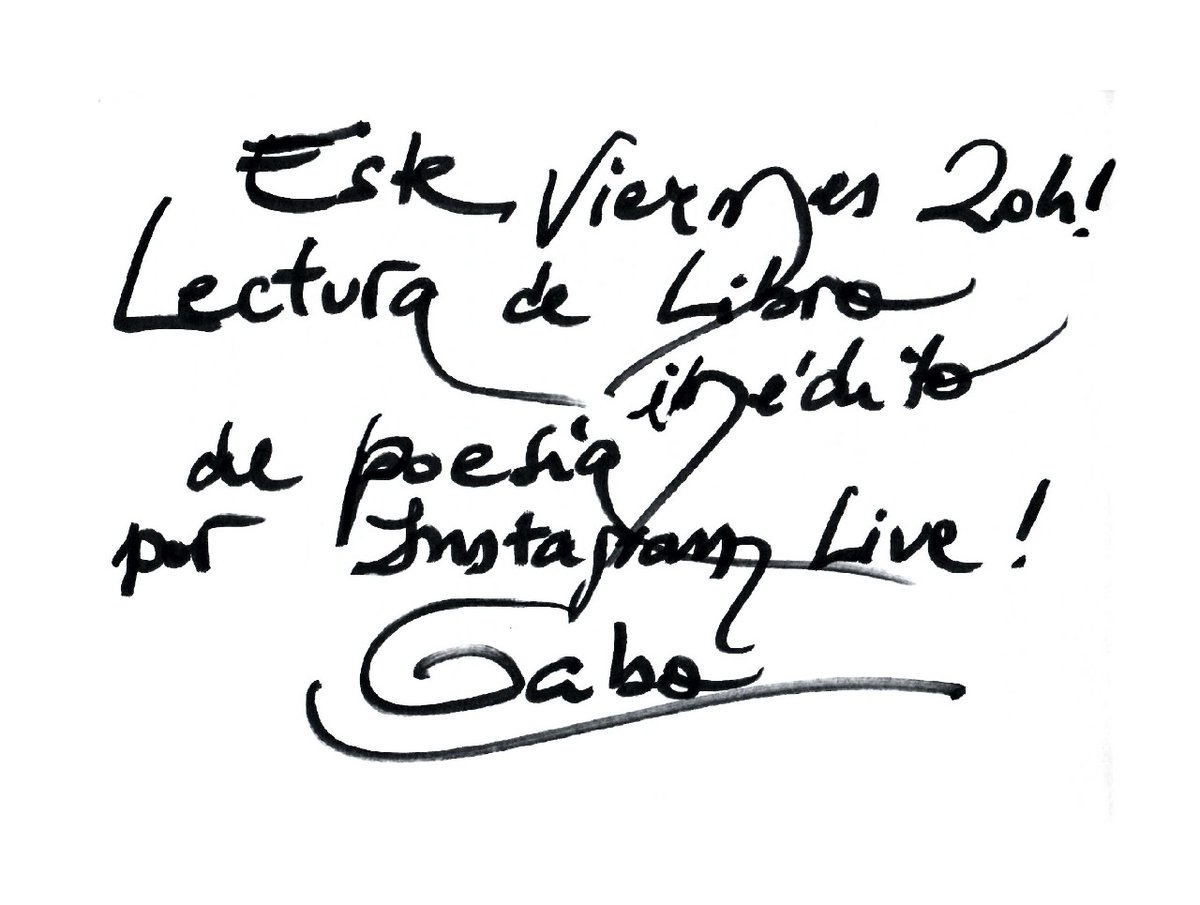 Este Viernes 20h!
Lectura de Libro
inédito
de poesía
por Instagram Live!
Gabo